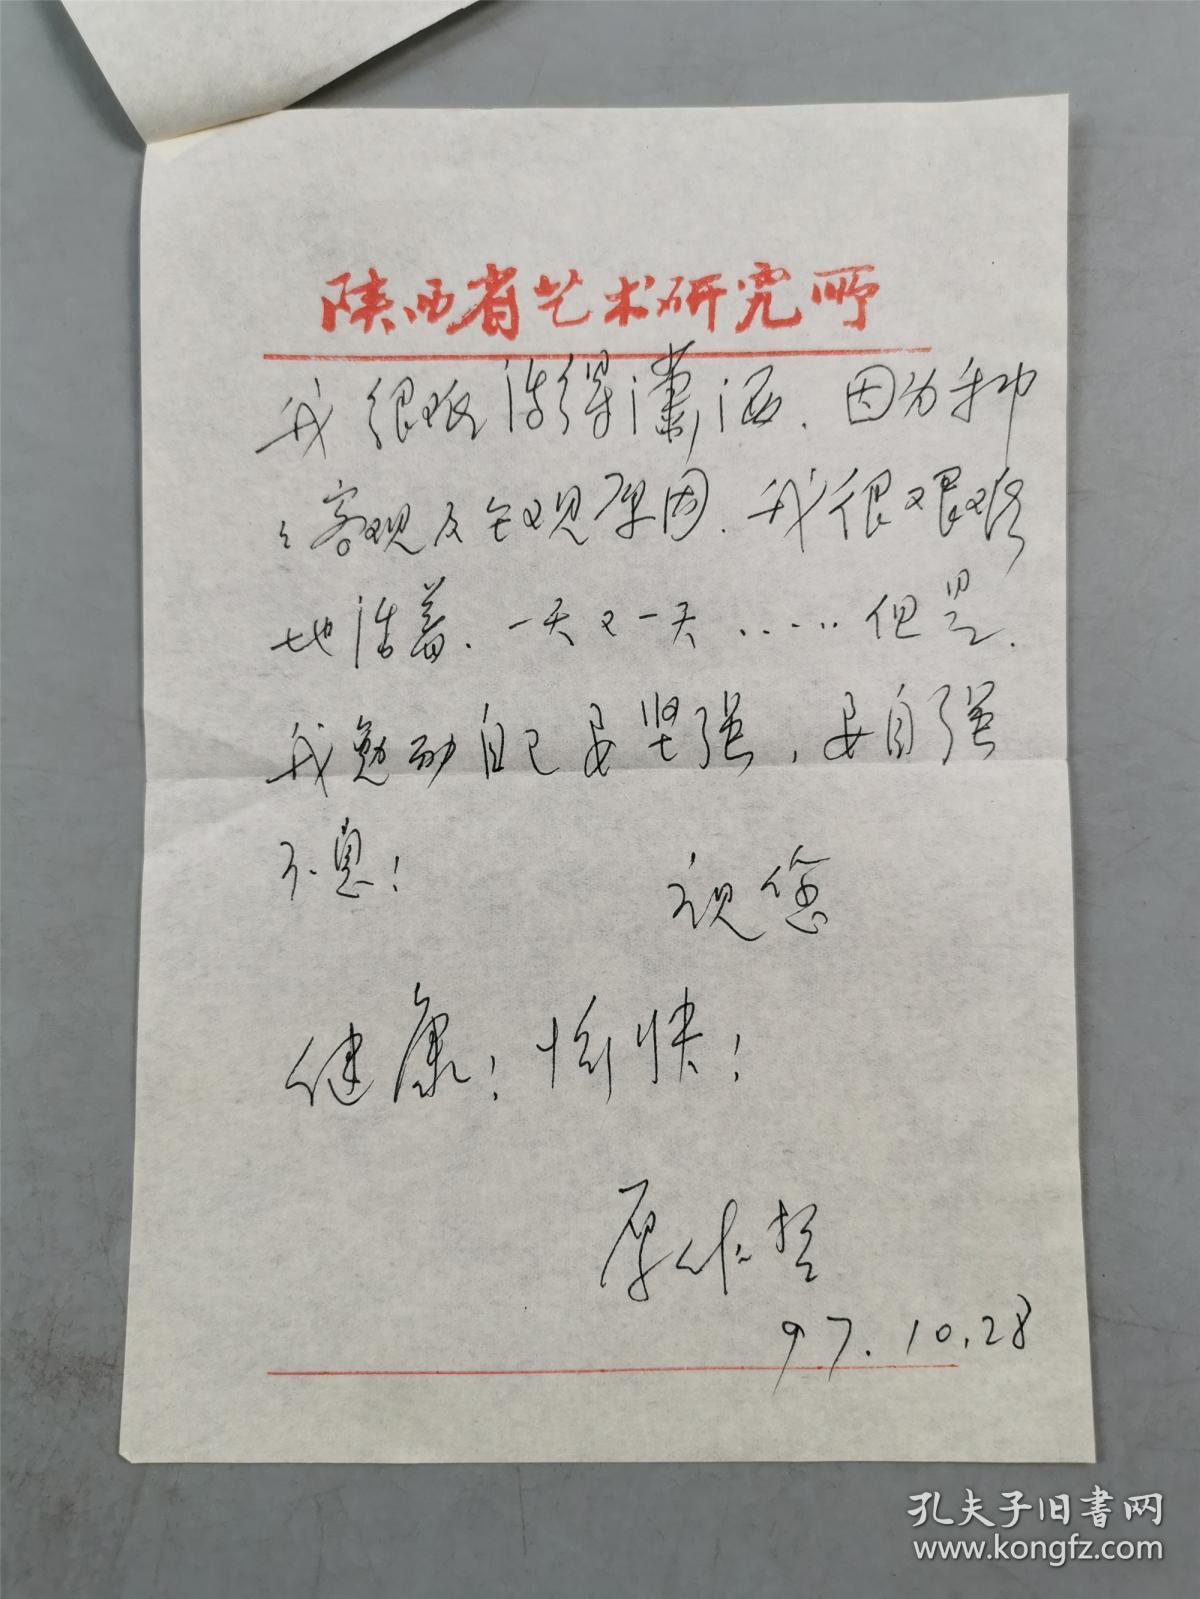 陕西省艺术研究所
我很难活得潇洒.因为种
々客观及主观原因.我很艰难
地活着.一天又一天……但是.
我勉励自己要坚强,要自强
不息!
祝您
健康!愉快!
厚作哲
97.10.28
孔夫子旧书网
www.kongfz.com